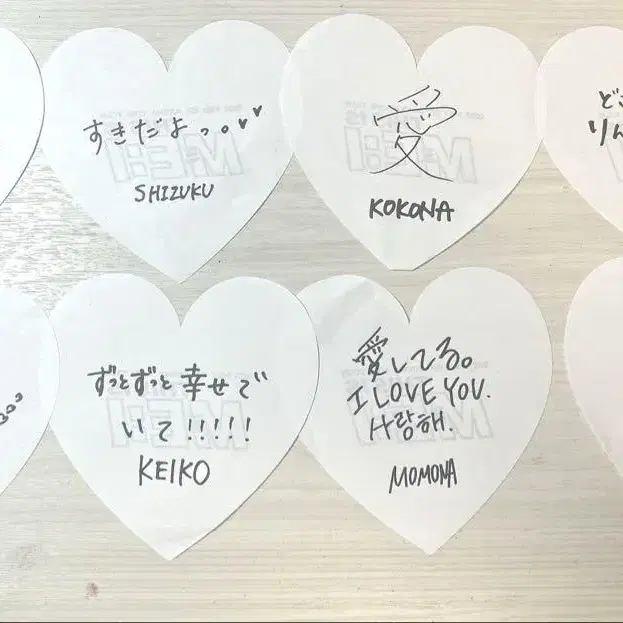 すきだよっ。♥♥
SHIZUKU
愛
KOKONA
ど
りん
ずっとずっと幸せで
いて!!!!!
KEIKO
愛してる。
I LOVE YOU.
사랑해.
MOMONA